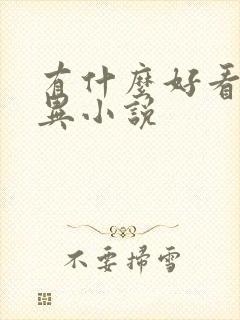 有什麼好看
異小說
不要掃雪